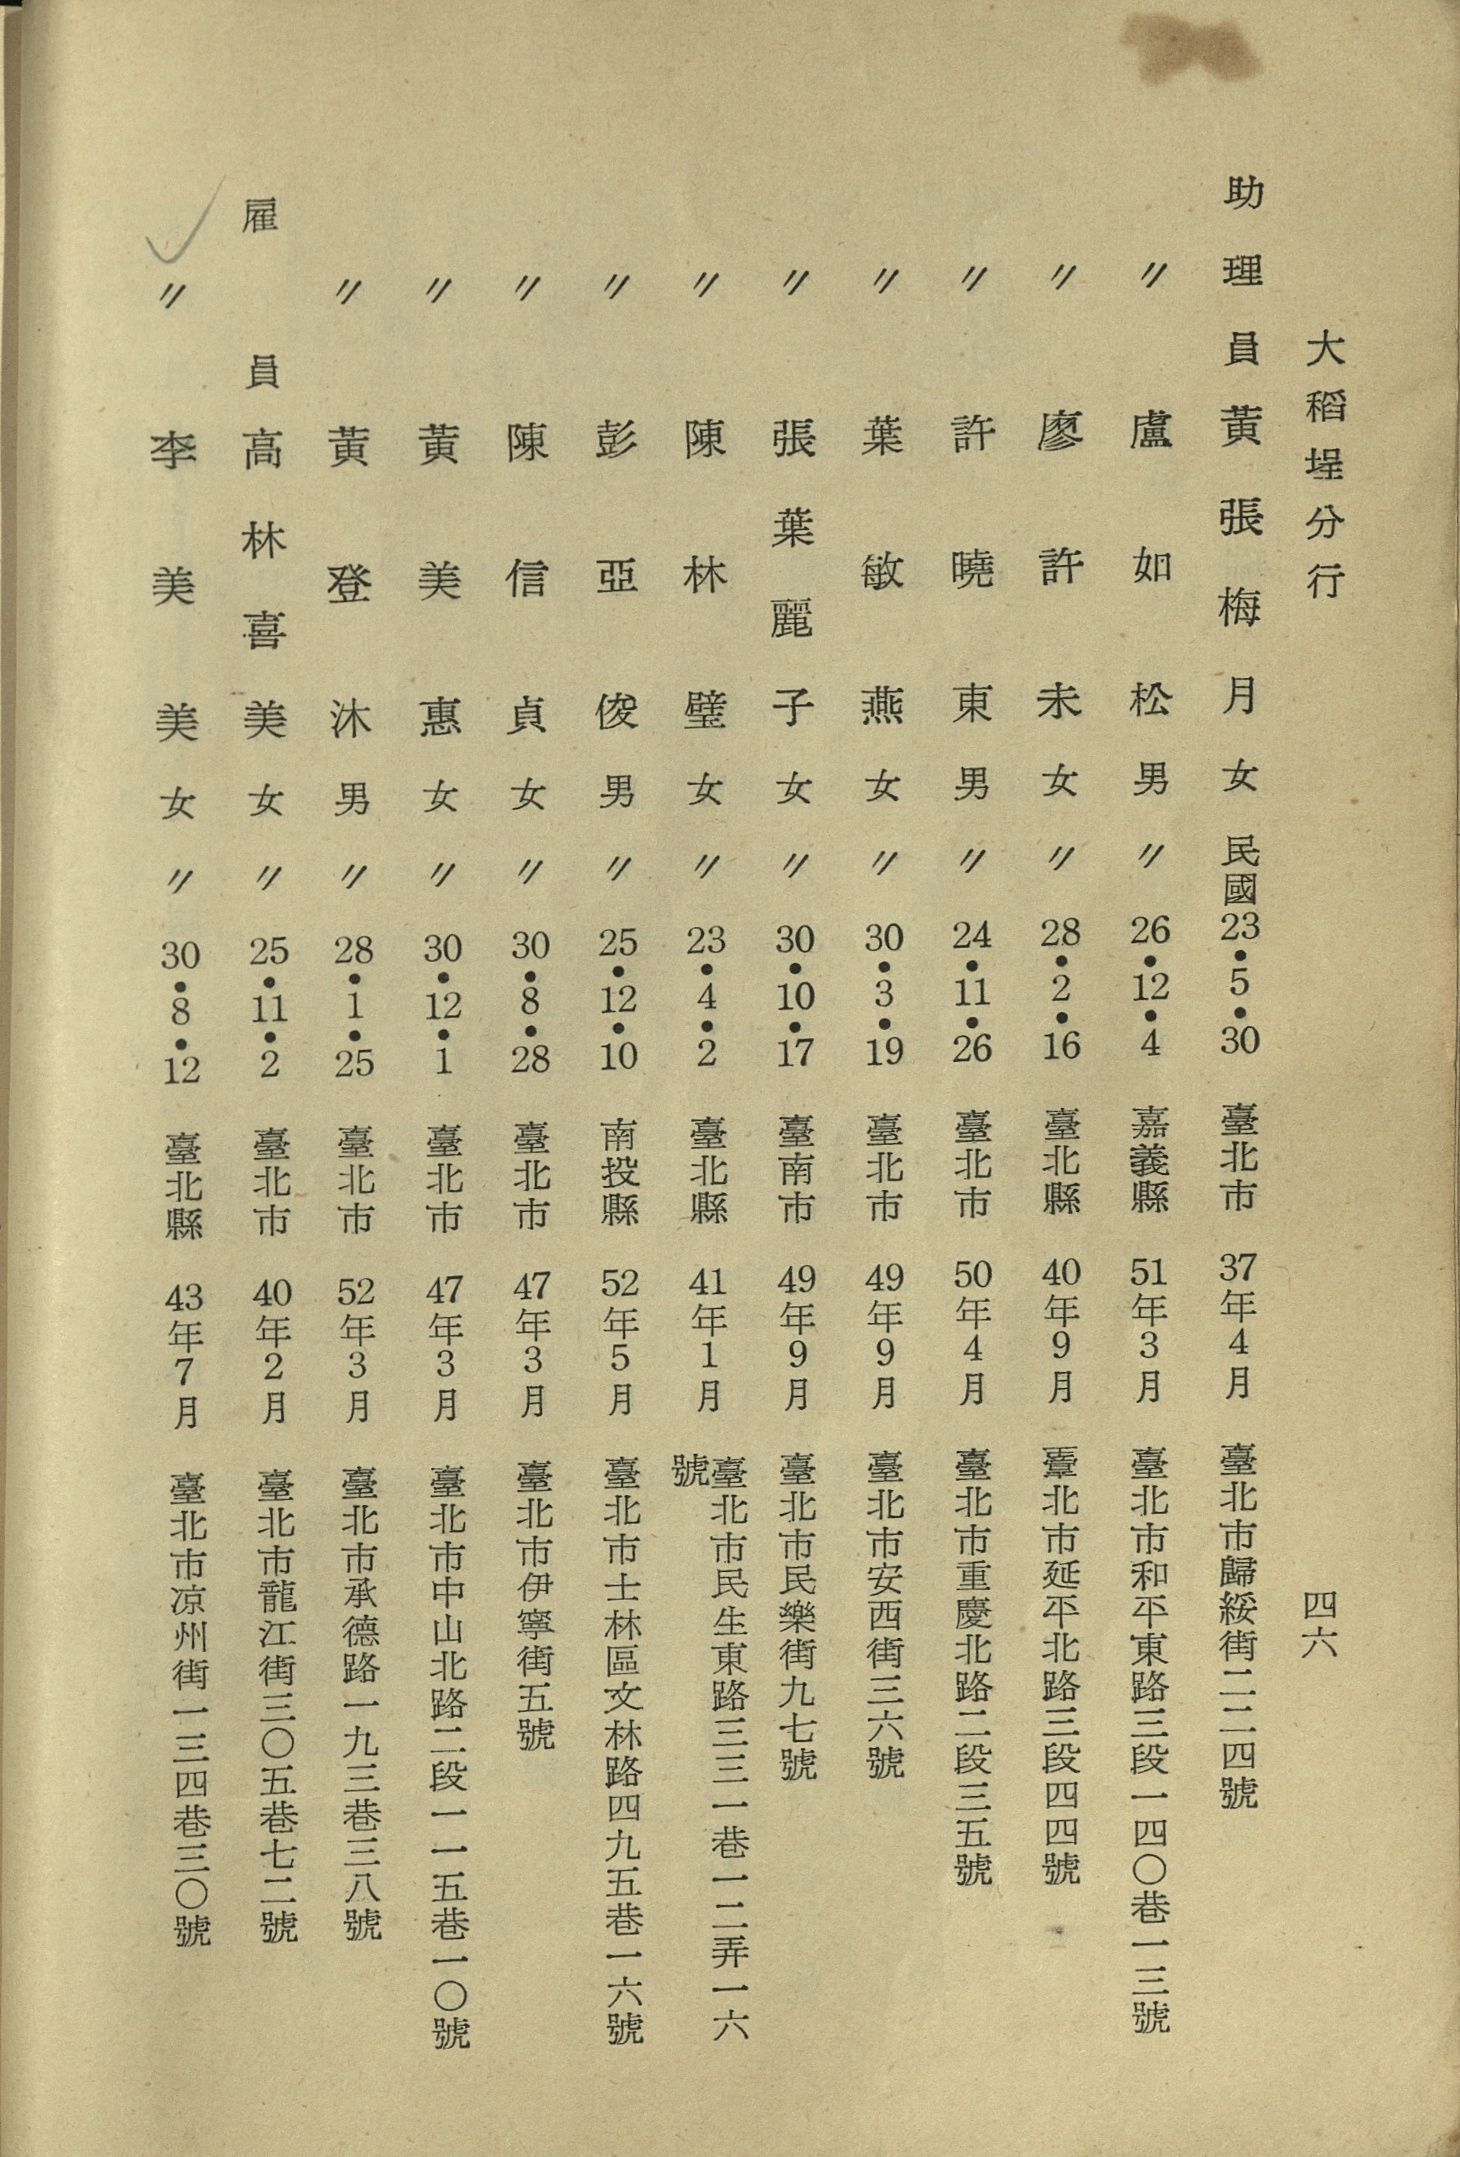 大稻埕分行 四六
助理員 黃張梅月 女 民國23•5•30 臺北市 37年4月 臺北市歸綏街二二四號
〃 盧如松 男 〃 26•12•4 嘉義縣 51年3月 臺北市和平東路三段一四〇巷一三號
〃 廖許未 女 〃 28•2•16 臺北縣 40年9月 臺北市延平北路三段四四號
〃 許曉東 男 〃 24•11•26 臺北市 50年4月 臺北市重慶北路二段三五號
〃 葉敏燕 女 〃 30•3•19 臺北市 49年9月 臺北市安西街三六號
〃 張葉麗子 女 〃 30•10•17 臺南市 49年9月 臺北市民樂街九七號
〃 陳林璧 女 〃 23•4•2 臺北縣 41年1月 臺北市民生東路三三一巷一二弄一六
號
〃 彭亞俊 男 〃 25•12•10 南投縣 52年5月 臺北市士林區文林路四九五巷一六號
〃 陳信貞 女 〃 30•8•28 臺北市 47年3月 臺北市伊寧街五號
〃 黃美惠 女 〃 30•12•1 臺北市 47年3月 臺北市中山北路二段一一五巷一〇號
〃 黃登沐 男 〃 28•1•25 臺北市 52年3月 臺北市承德路一九三巷三八號
雇員 高林喜美 女 〃 25•11•2 臺北市 40年2月 臺北市龍江街三〇五巷七二號
〃 李美美 女 〃 30•8•12 臺北縣 43年7月 臺北市凉州街一三四巷三〇號